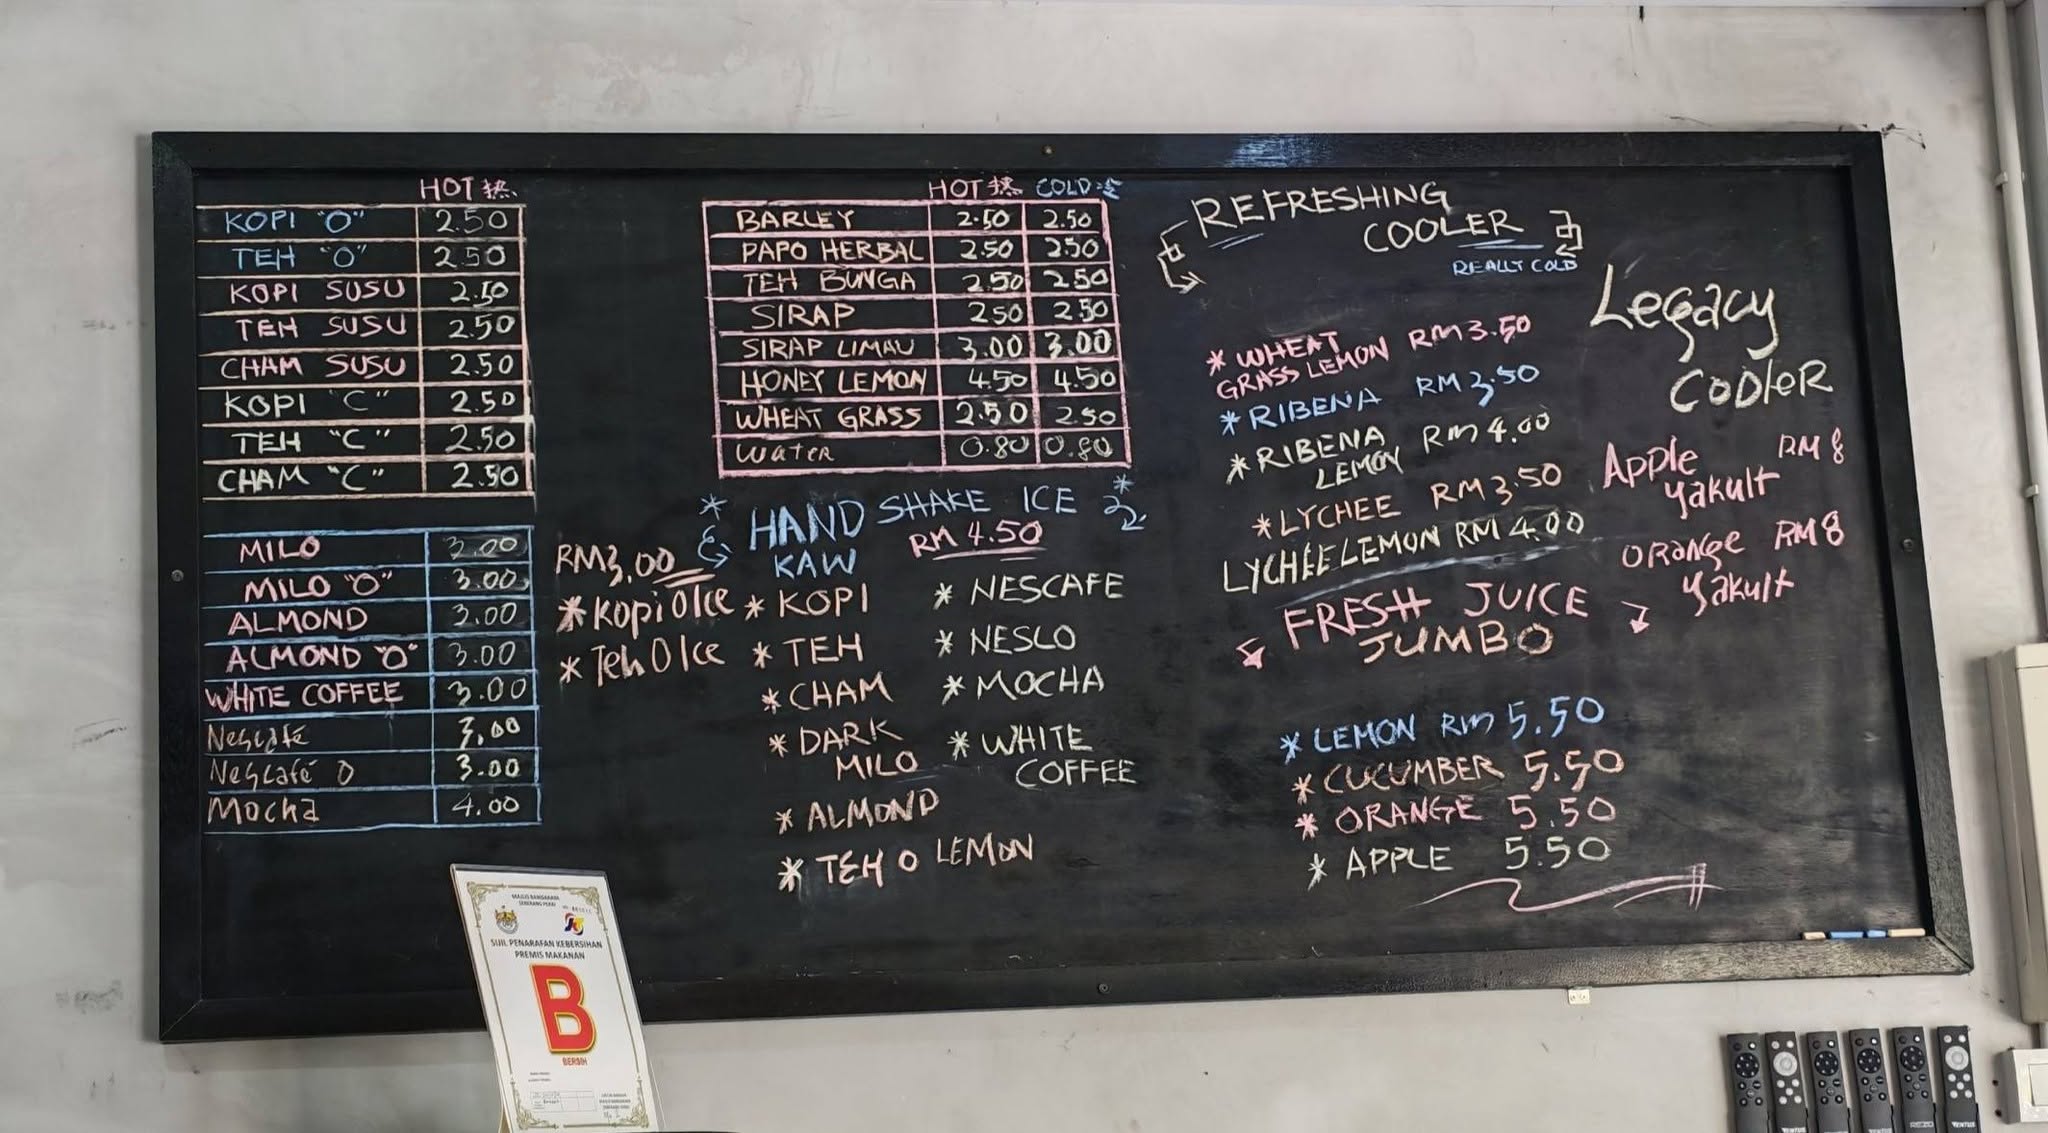 HOT 热
KOPI "O" 2.50
TEH "O" 2.50
KOPI SUSU 2.50
TEH SUSU 2.50
CHAM SUSU 2.50
KOPI "C" 2.50
TEH "C" 2.50
CHAM "C" 2.50
MILO 3.00
MILO "O" 3.00
ALMOND 3.00
ALMOND "O" 3.00
WHITE COFFEE 3.00
Nescafé 3.00
Nescafé O 3.00
Mocha 4.00
RM3.00
* Kopi O Ice
* Teh O Ice
HOT 热 COLD 冷
BARLEY 2.50 2.50
PAPO HERBAL 2.50 2.50
TEH BUNGA 2.50 2.50
SIRAP 2.50 2.50
SIRAP LIMAU 3.00 3.00
HONEY LEMON 4.50 4.50
WHEAT GRASS 2.50 2.50
Water 0.80 0.80
* HAND SHAKE ICE *
KAW RM 4.50
* KOPI
* TEH
* CHAM
* DARK
MILO
* ALMOND
* TEH O LEMON
* NESCAFE
* NESLO
* MOCHA
* WHITE
COFFEE
REFRESHING
COOLER
REALLY COLD
* WHEAT
GRASS LEMON RM 3.50
* RIBENA RM 3.50
* RIBENA
LEMON RM 4.00
* LYCHEE RM 3.50
LYCHEE LEMON RM 4.00
FRESH JUICE
JUMBO
* LEMON RM 5.50
* CUCUMBER 5.50
* ORANGE 5.50
* APPLE 5.50
Legacy
COOLER
Apple RM 8
Yakult
Orange RM 8
Yakult
MAJLIS BANDARAYA
SEBERANG PERAI
SIJIL PENARAFAN KEBERSIHAN
PREMIS MAKANAN
B
BERSIH